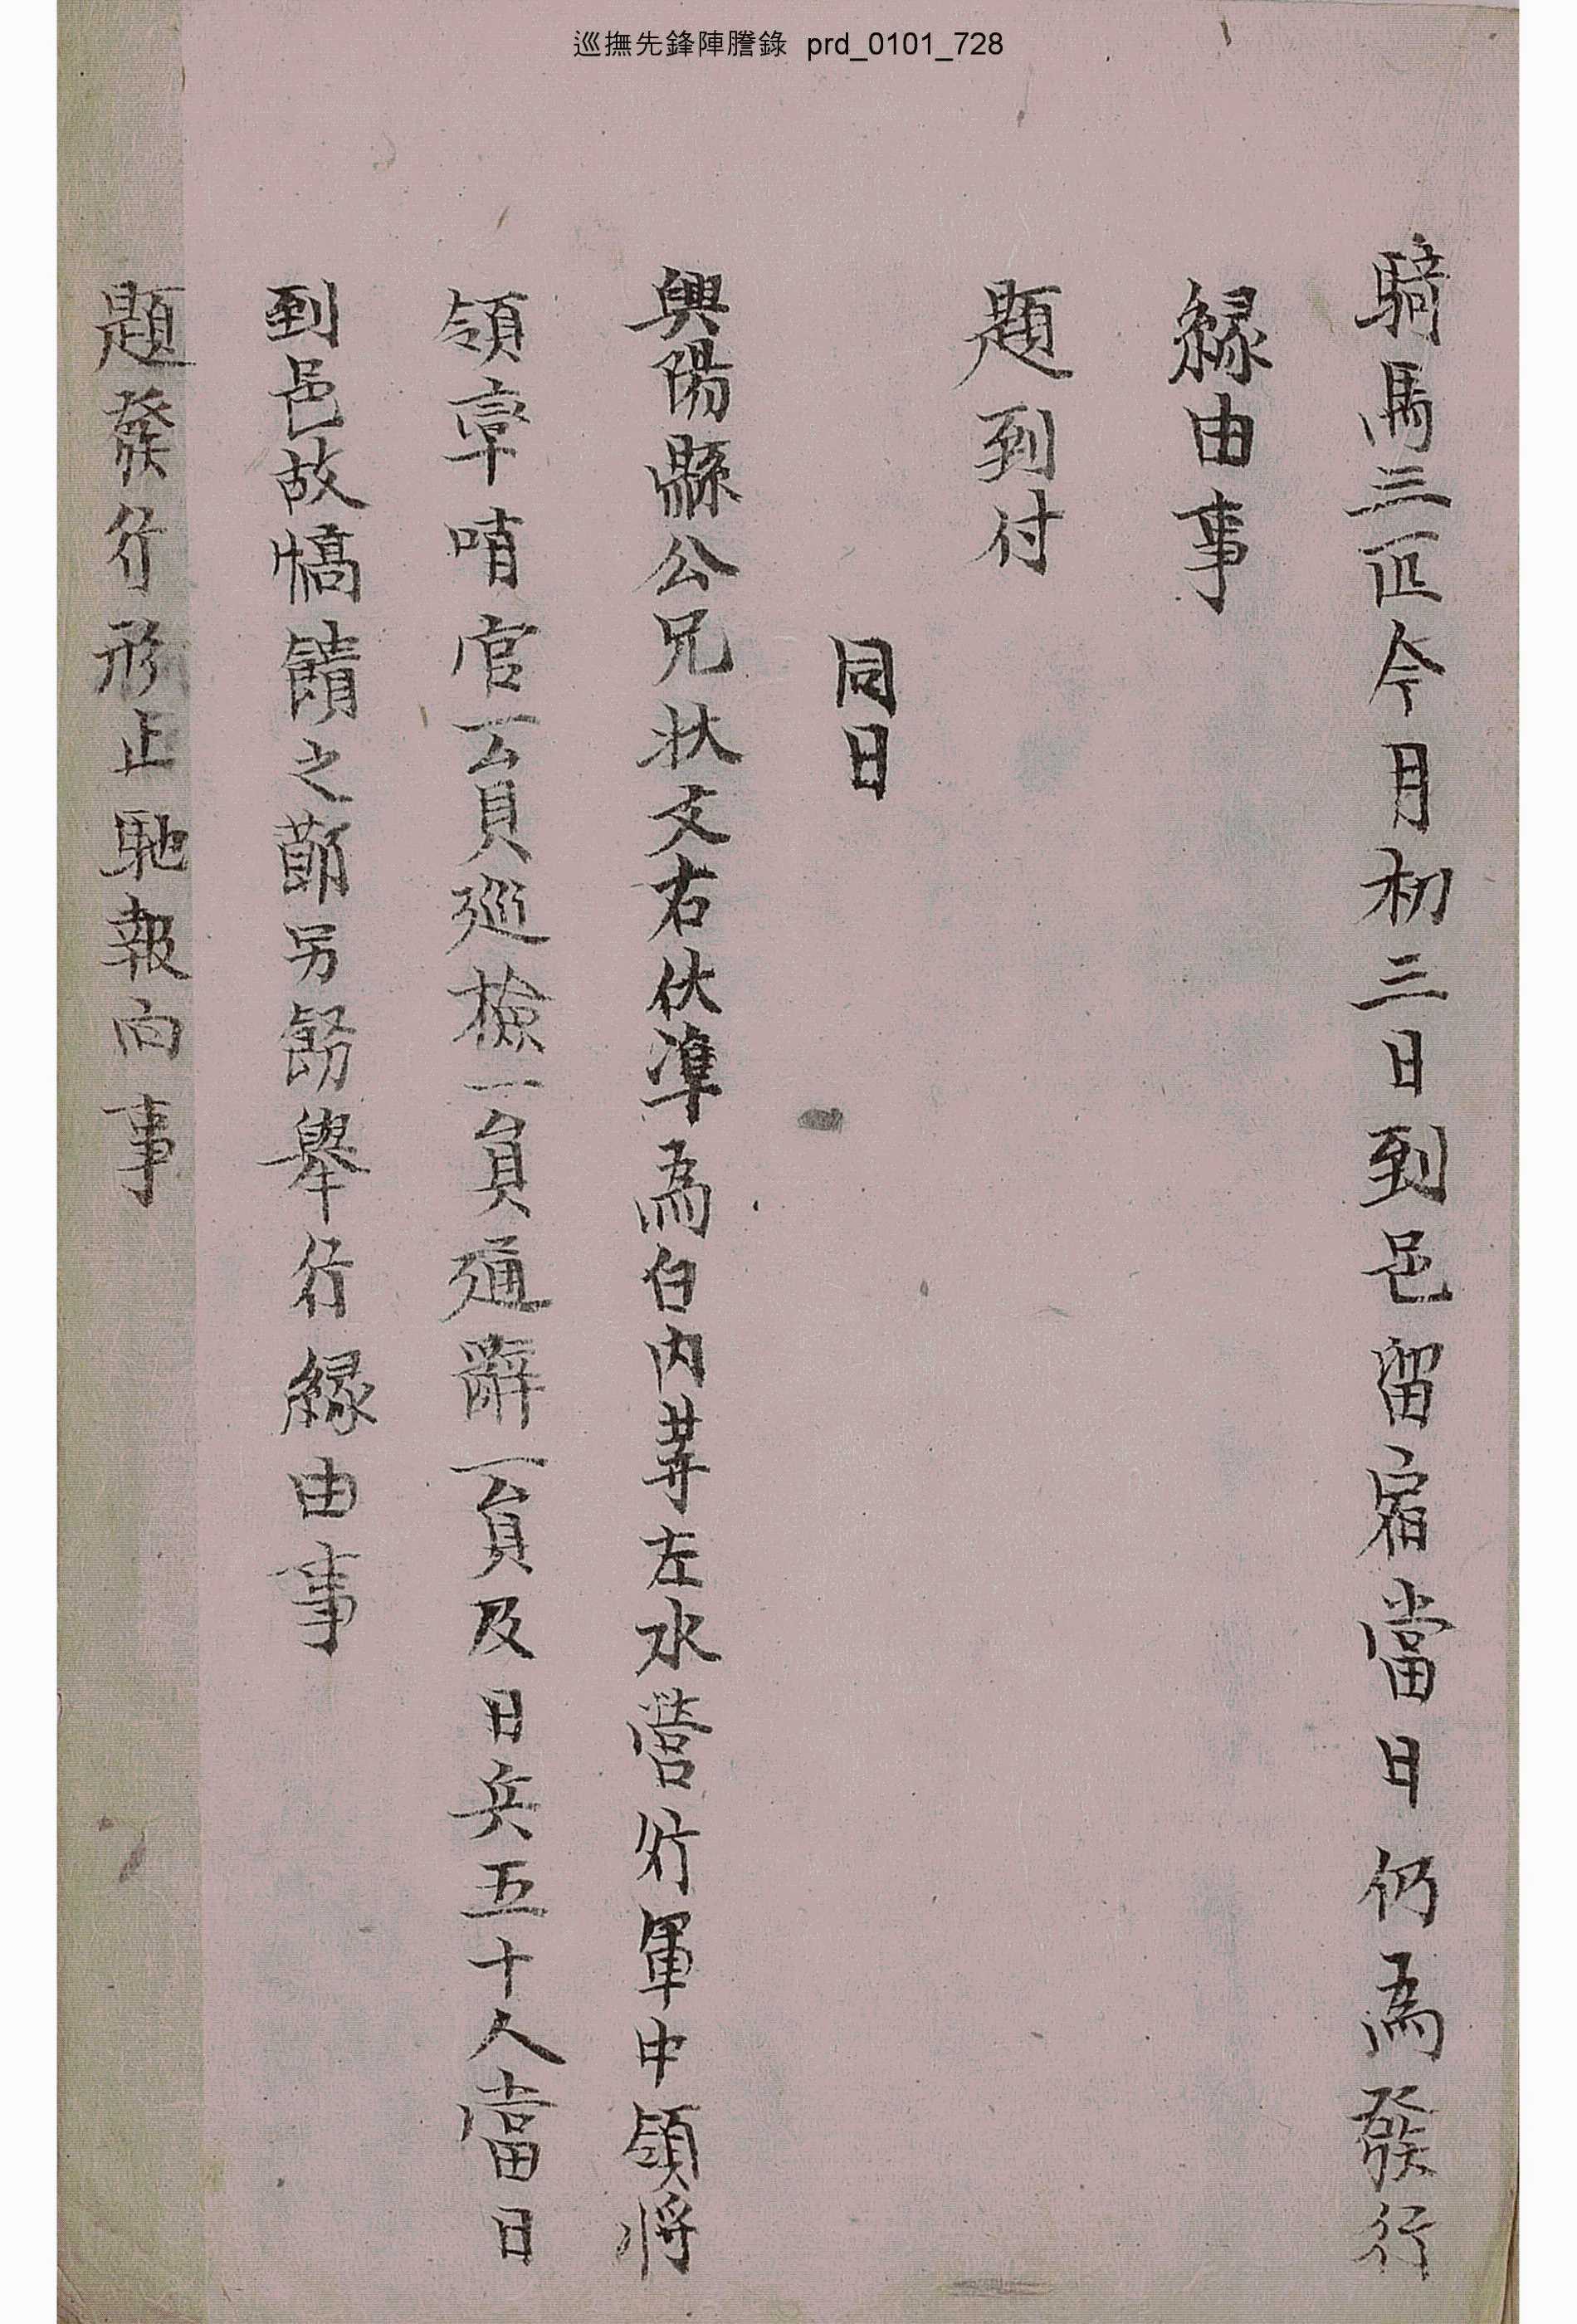 巡撫先鋒陣謄錄 prd_0101_728
騎馬三匹今月初三日到邑留宿當日仍爲發行
緣由事
題到付
同日
興陽縣公兄狀文右伏準爲白內等左水營行軍中領將
領率哨官一員巡檢一員通辭一員及日兵五十人當日
到邑故犒饋之節另飭擧行緣由事
題發行形止馳報向事